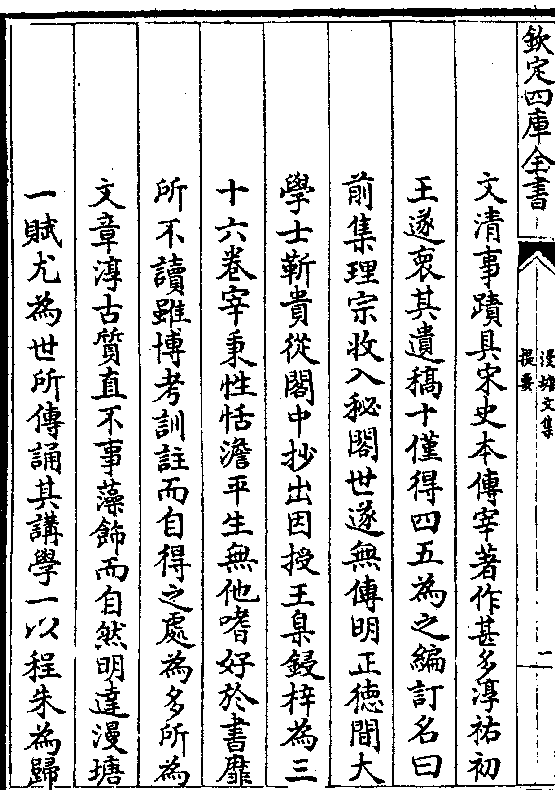 欽定四庫全書
漫塘文集
提要
二
文清事蹟具宋史本傳宰著作甚多淳祐初
王遂裒其遺稿十僅得四五為之編訂名曰
前集理宗收入秘閣世遂無傳明正德間大
學士靳貴從閣中抄出因授王臬鋟梓為三
十六卷宰秉性恬澹平生無他嗜好於書靡
所不讀雖博考訓註而自得之處為多所為
文章淳古質直不事藻飾而自然明達漫塘
一賦尤為世所傳誦其講學一以程朱為歸